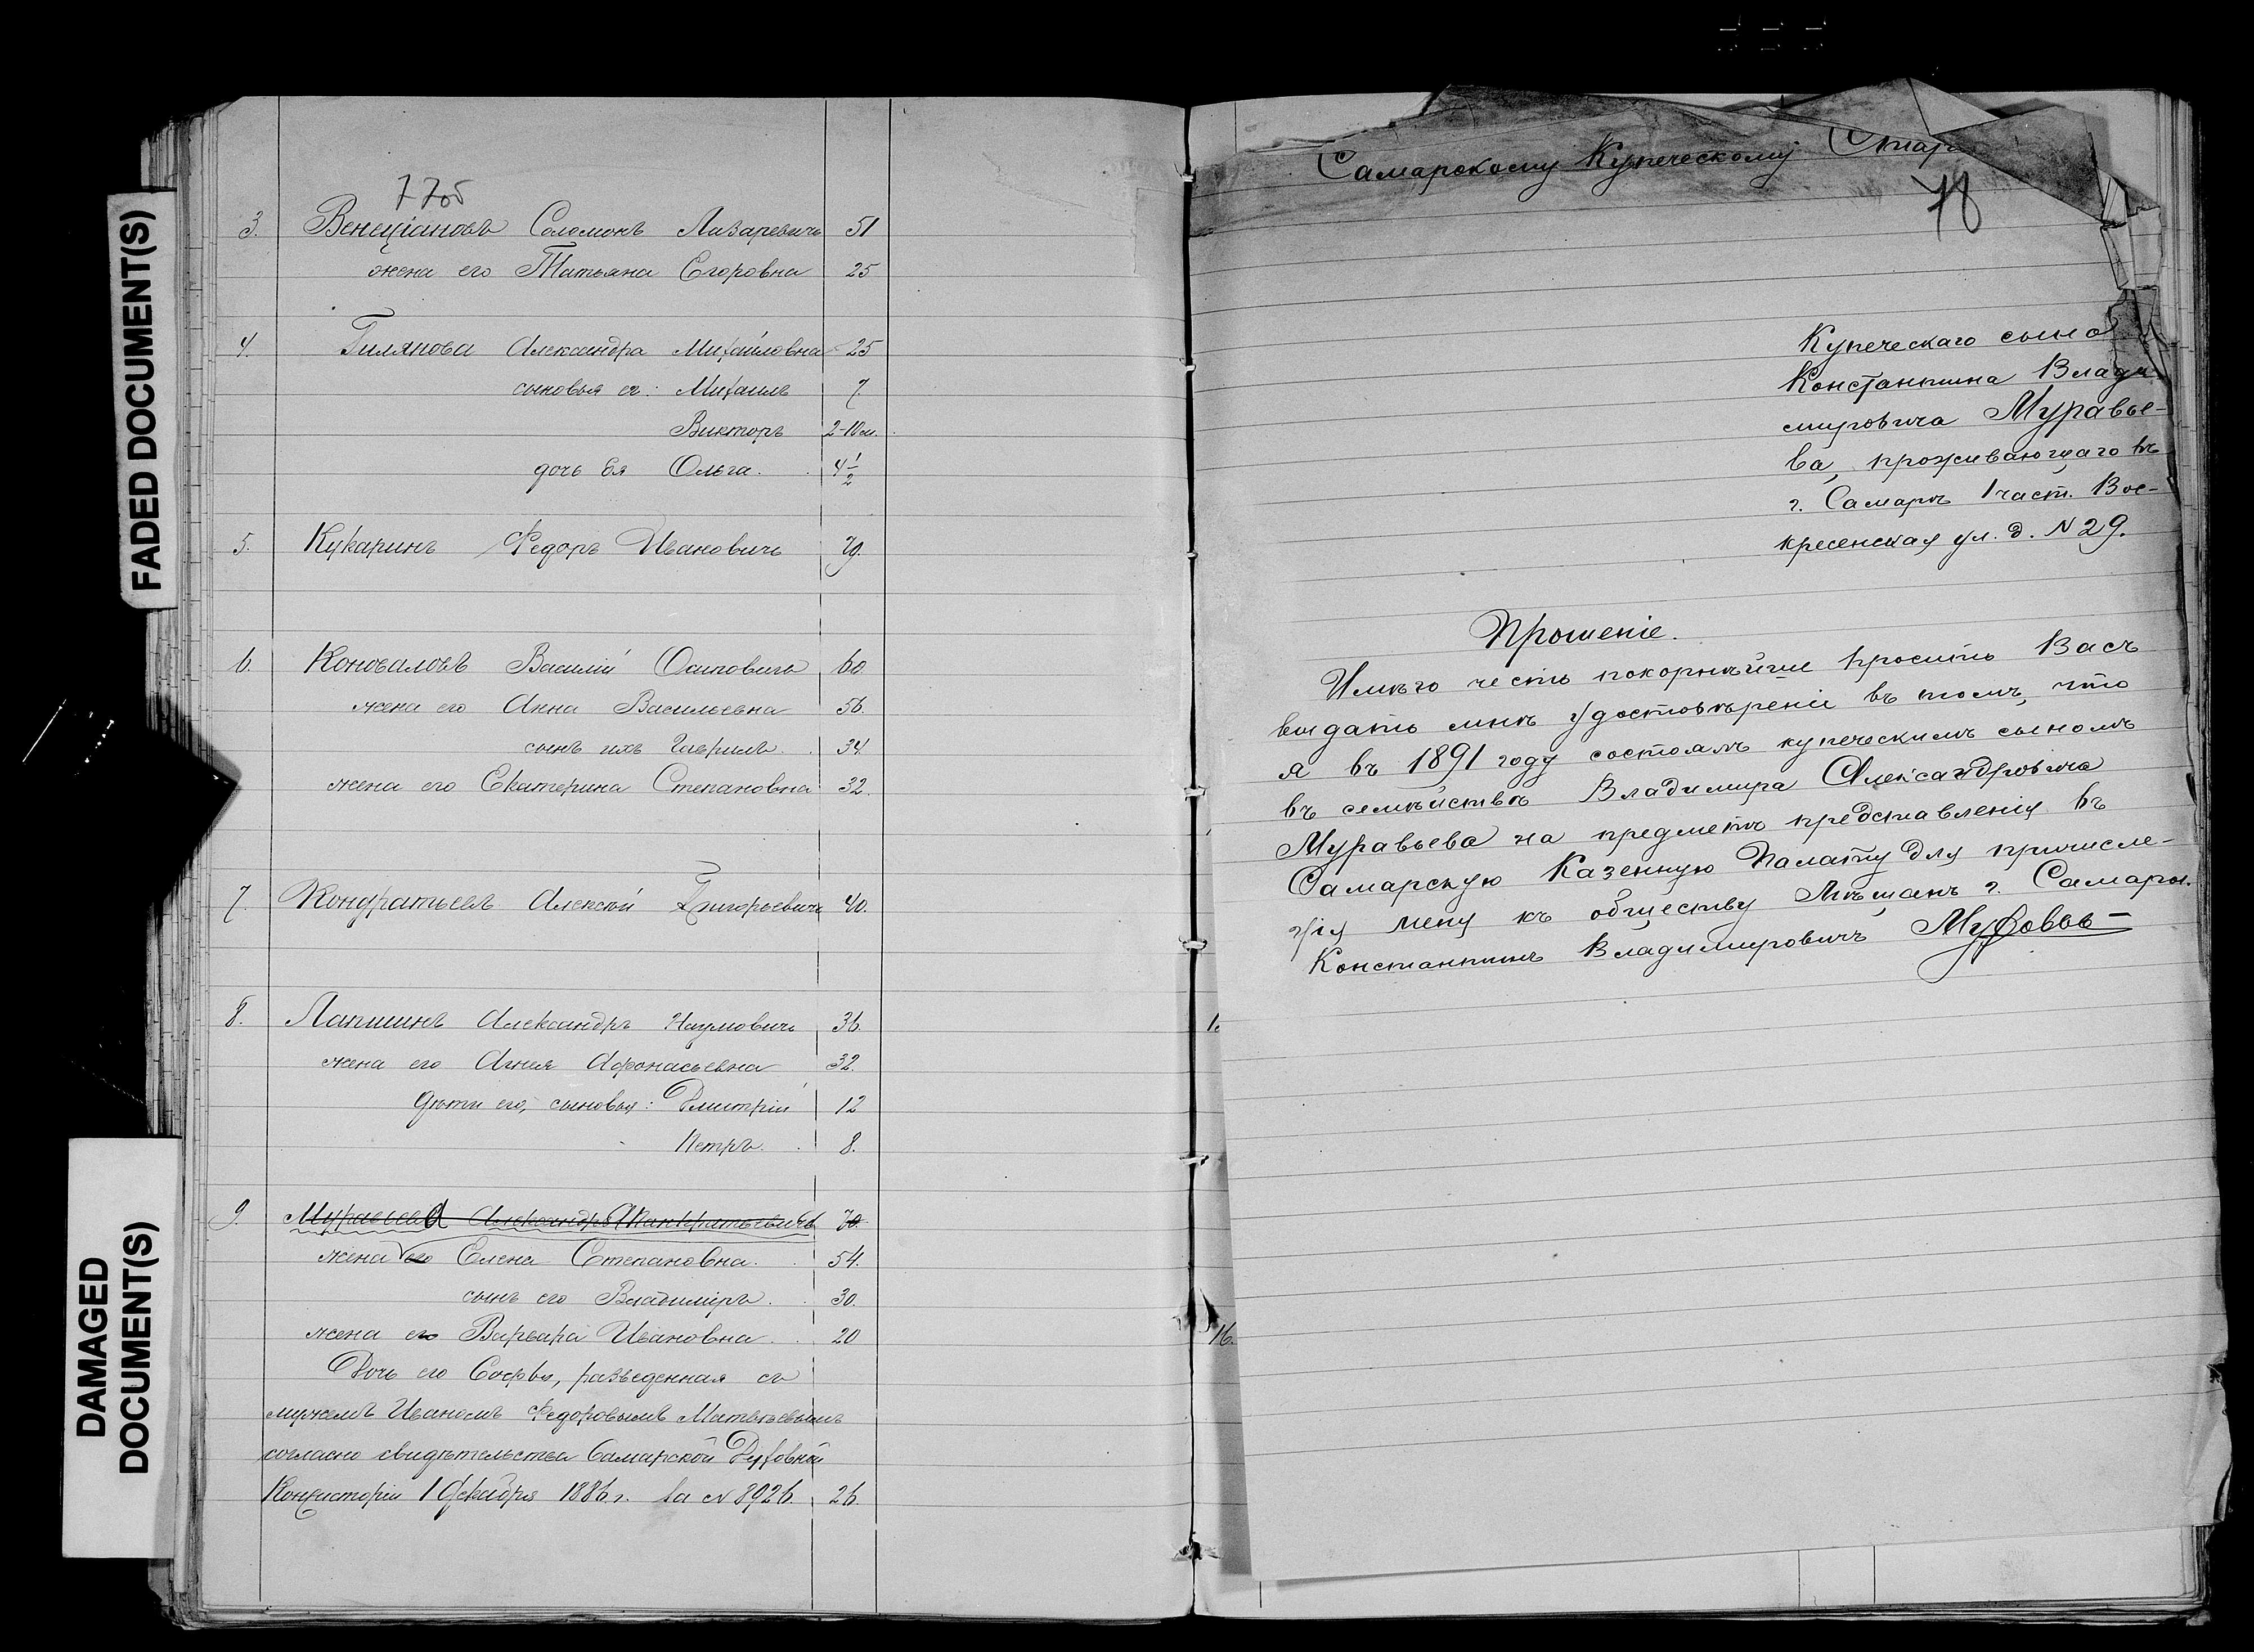 FADED DOCUMENT(S)
DAMAGED
DOCUMENT(S)
3. Венеціановъ Соломонъ Лазаревичъ 51
жена его Татьяна Егоровна 25
4. Гилянова Александра Михайловна 25
сыновья ея: Михаилъ 7.
Викторъ 2-10 м.
дочь ея Ольга. 4 1/2
5. Кукаринъ Федоръ Ивановичъ 70.
6. Коноваловъ Василій Осиповичъ 60.
жена его Анна Васильевна 56.
сынъ ихъ Гаврилъ. 34.
жена его Екатерина Степановна 32.
7. Кондратьевъ Алексѣй Григорьевичъ 40.
8. Лапшинъ Александръ Наумовичъ 36.
жена его Агнея Афонасьевна 32.
дѣти его, сыновья: Дмитрій 12
Петръ. 8.
9. Муравьева Александра Панкратьевича 70.
жена его Елена Степановна. 54.
сынъ его Владиміръ. 30.
жена его Варвара Ивановна. 20
Дочь его Софья, разведенная съ
мужемъ Иваномъ Федоровымъ Матвѣевымъ
согласно свидѣтельства Самарской Духовной
Консисторіи 1 Декабря 1886 г. за № 8926. 26.
Самарскому Купеческому Стар
78
Купеческаго сына
Константина Влади-
мировича Муравье-
ва, проживающаго въ
г. Самарѣ 1 част. Вос-
кресенская ул. д. № 29.
Прошеніе.
Имѣю честь покорнѣйше просить Васъ
выдать мнѣ удостовѣреніе въ томъ, что
я въ 1891 году состоялъ купеческимъ сыномъ
въ семѣйствѣ Владимира Александровича
Муравьева на предметъ представленія въ
Самарскую Казенную Палату для причисле-
нія меня къ обществу Мѣщанъ г. Самары.
Константинъ Владимировичъ Муравьевъ
16.